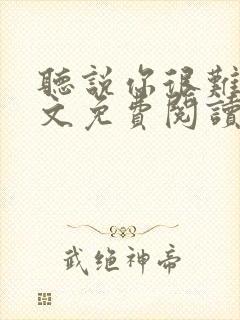 聽説你很難
文免費閱讀
武绝神帝